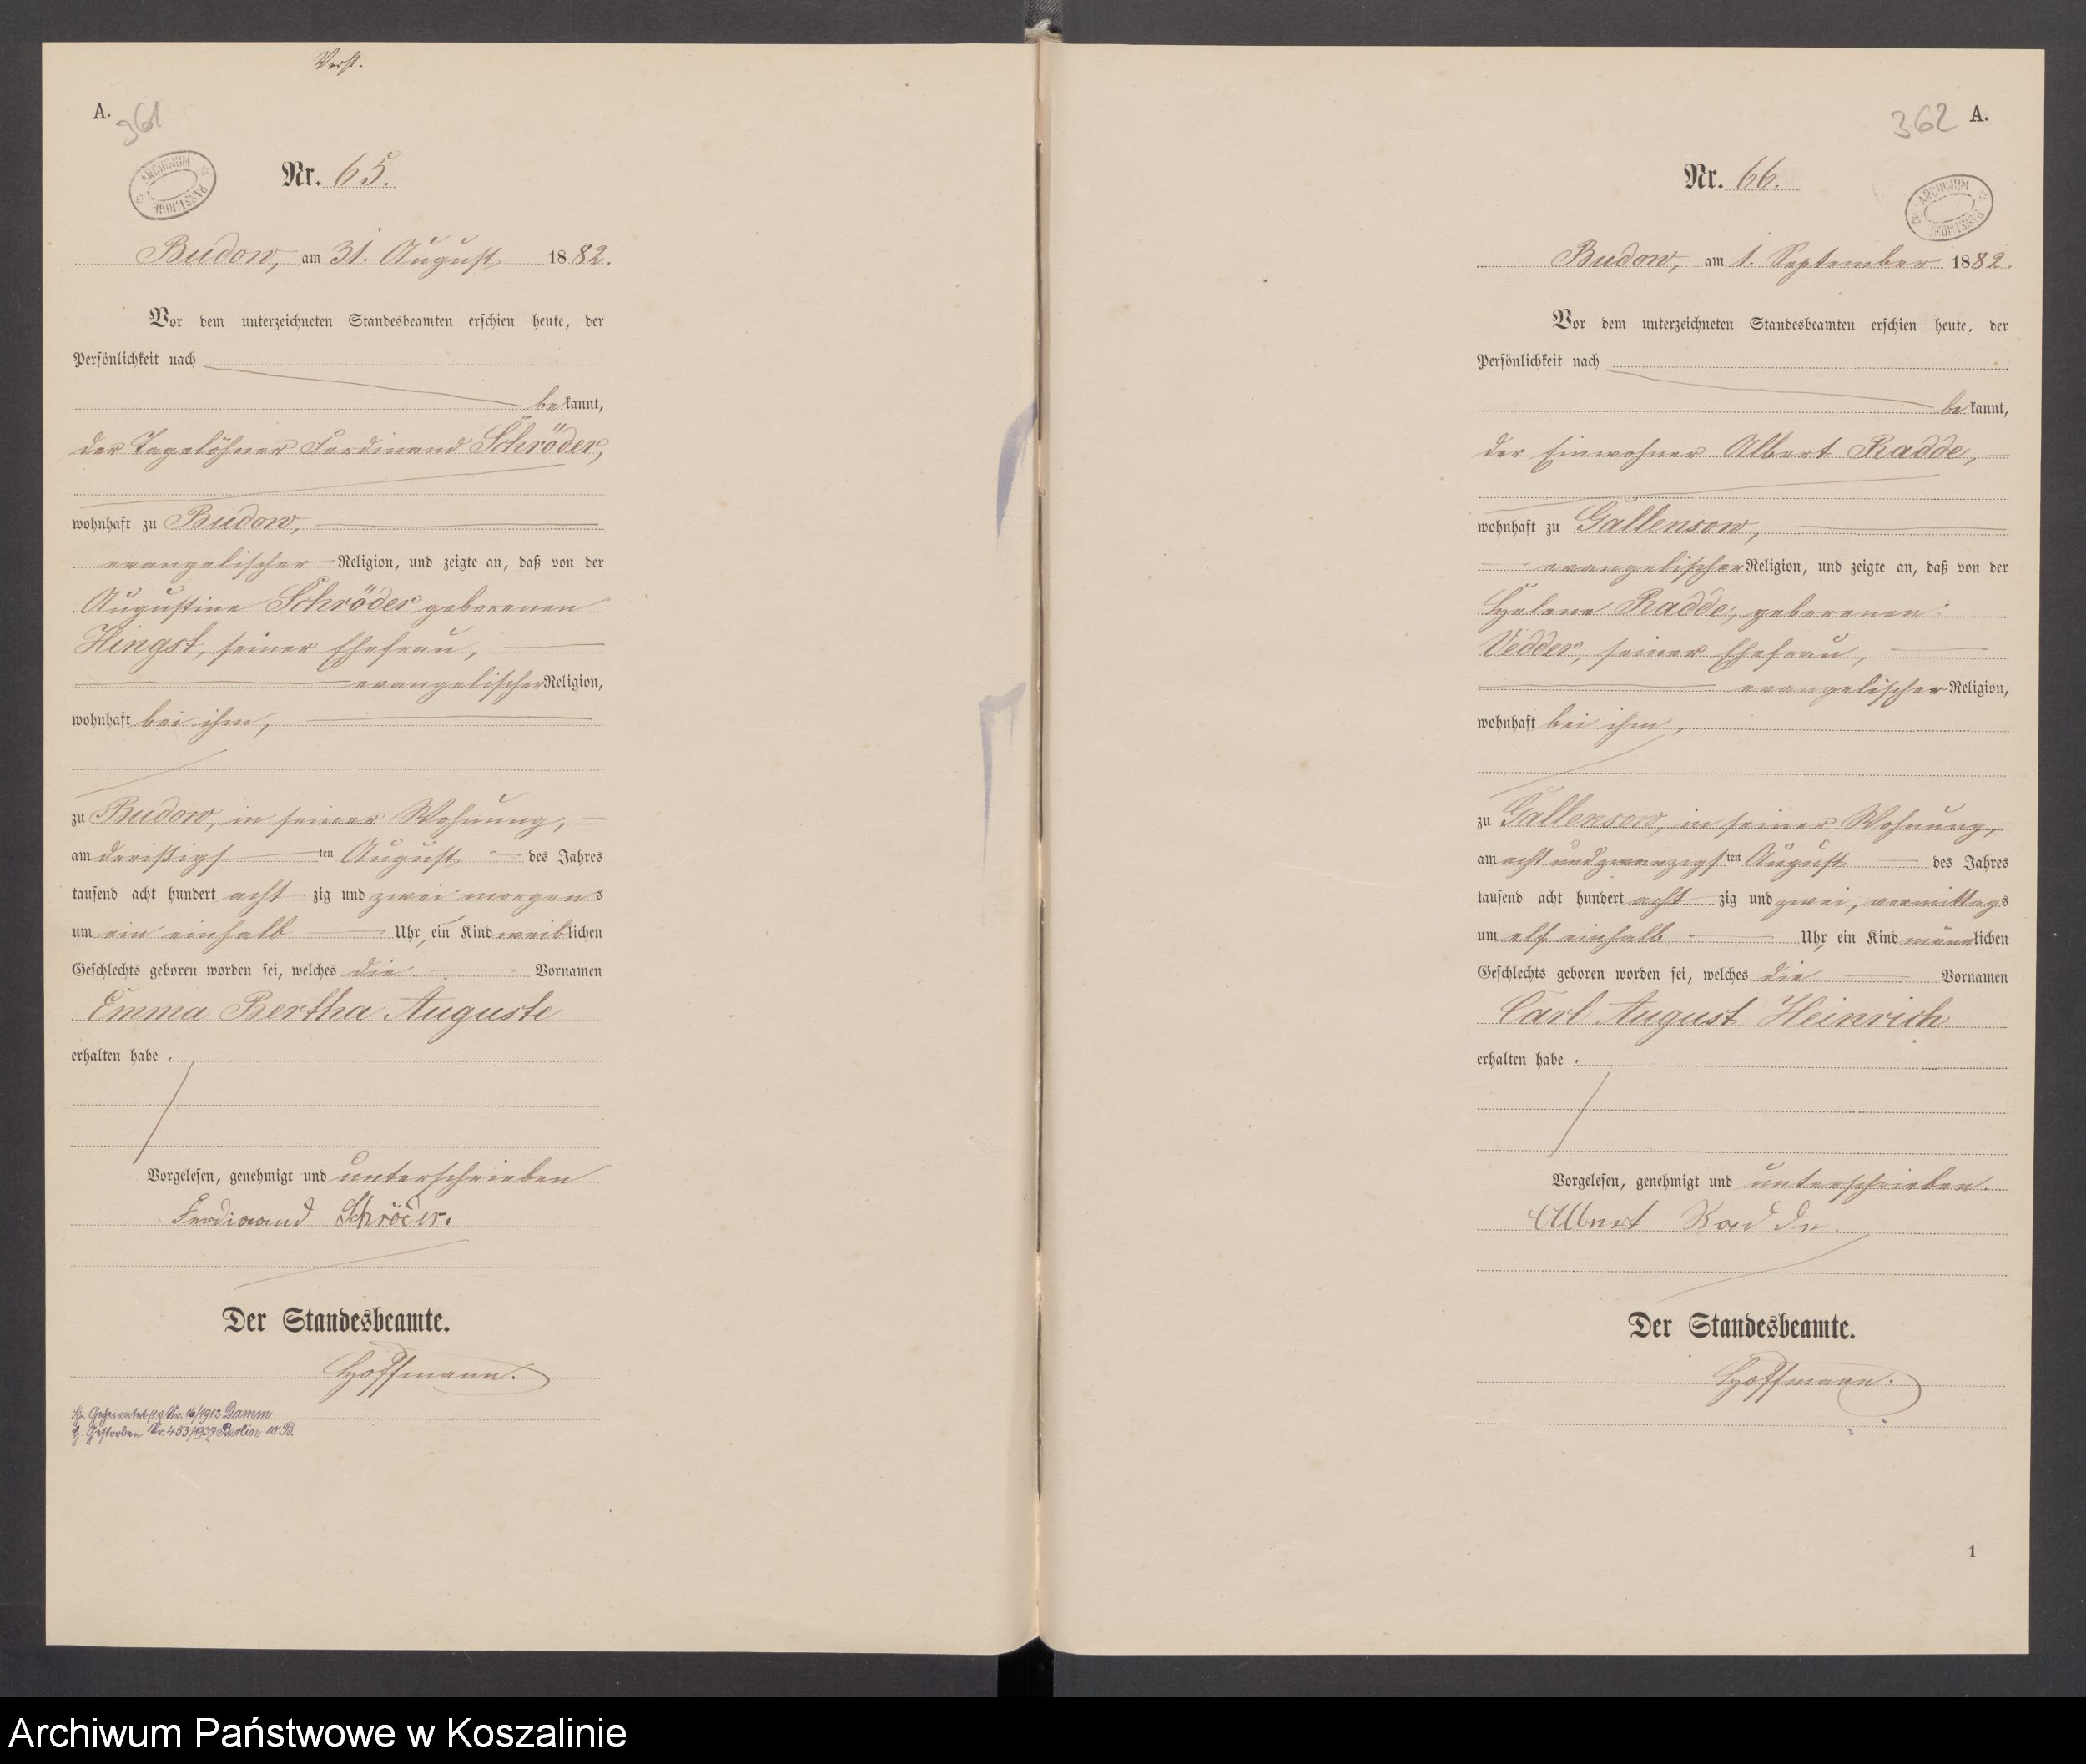 Verst.
A.
361
ARCHIWUM PAŃSTWOWE
Nr. 65.
Budow, am 31. August 1882.
Vor dem unterzeichneten Standesbeamten erschien heute, der
Persönlichkeit nach
bekannt,
der Tagelöhner Ferdinand Schröder,
wohnhaft zu Budow,
evangelischer Religion, und zeigte an, daß von der
Augustine Schröder geborenen
Hingst, seiner Ehefrau,
evangelischer Religion,
wohnhaft bei ihm,
zu Budow, in seiner Wohnung,
am dreißigsten August des Jahres
tausend acht hundert achtzig und zwei morgens
um ein einhalb Uhr, ein Kind weiblichen
Geschlechts geboren worden sei, welches die Vornamen
Emma Bertha Auguste
erhalten habe.
Vorgelesen, genehmigt und unterschrieben
Ferdinand Schröder.
Der Standesbeamte.
Hoffmann.
Geheiratet Nr. 16/1912 Damm
Gestorben Nr. 453/1937 Berlin 10 B.
362 A.
ARCHIWUM PAŃSTWOWE
Nr. 66.
Budow, am 1. September 1882.
Vor dem unterzeichneten Standesbeamten erschien heute, der
Persönlichkeit nach
bekannt,
der Einwohner Albert Radde,
wohnhaft zu Gallensow,
evangelischer Religion, und zeigte an, daß von der
Helene Radde, geborenen
Vedder, seiner Ehefrau,
evangelischer Religion,
wohnhaft bei ihm,
zu Gallensow, in seiner Wohnung,
am acht und zwanzigsten August des Jahres
tausend acht hundert achtzig und zwei, vormittags
um elf einhalb Uhr, ein Kind männlichen
Geschlechts geboren worden sei, welches die Vornamen
Carl August Heinrich
erhalten habe.
Vorgelesen, genehmigt und unterschrieben.
Albert Radde.
Der Standesbeamte.
Hoffmann.
1
Archiwum Państwowe w Koszalinie